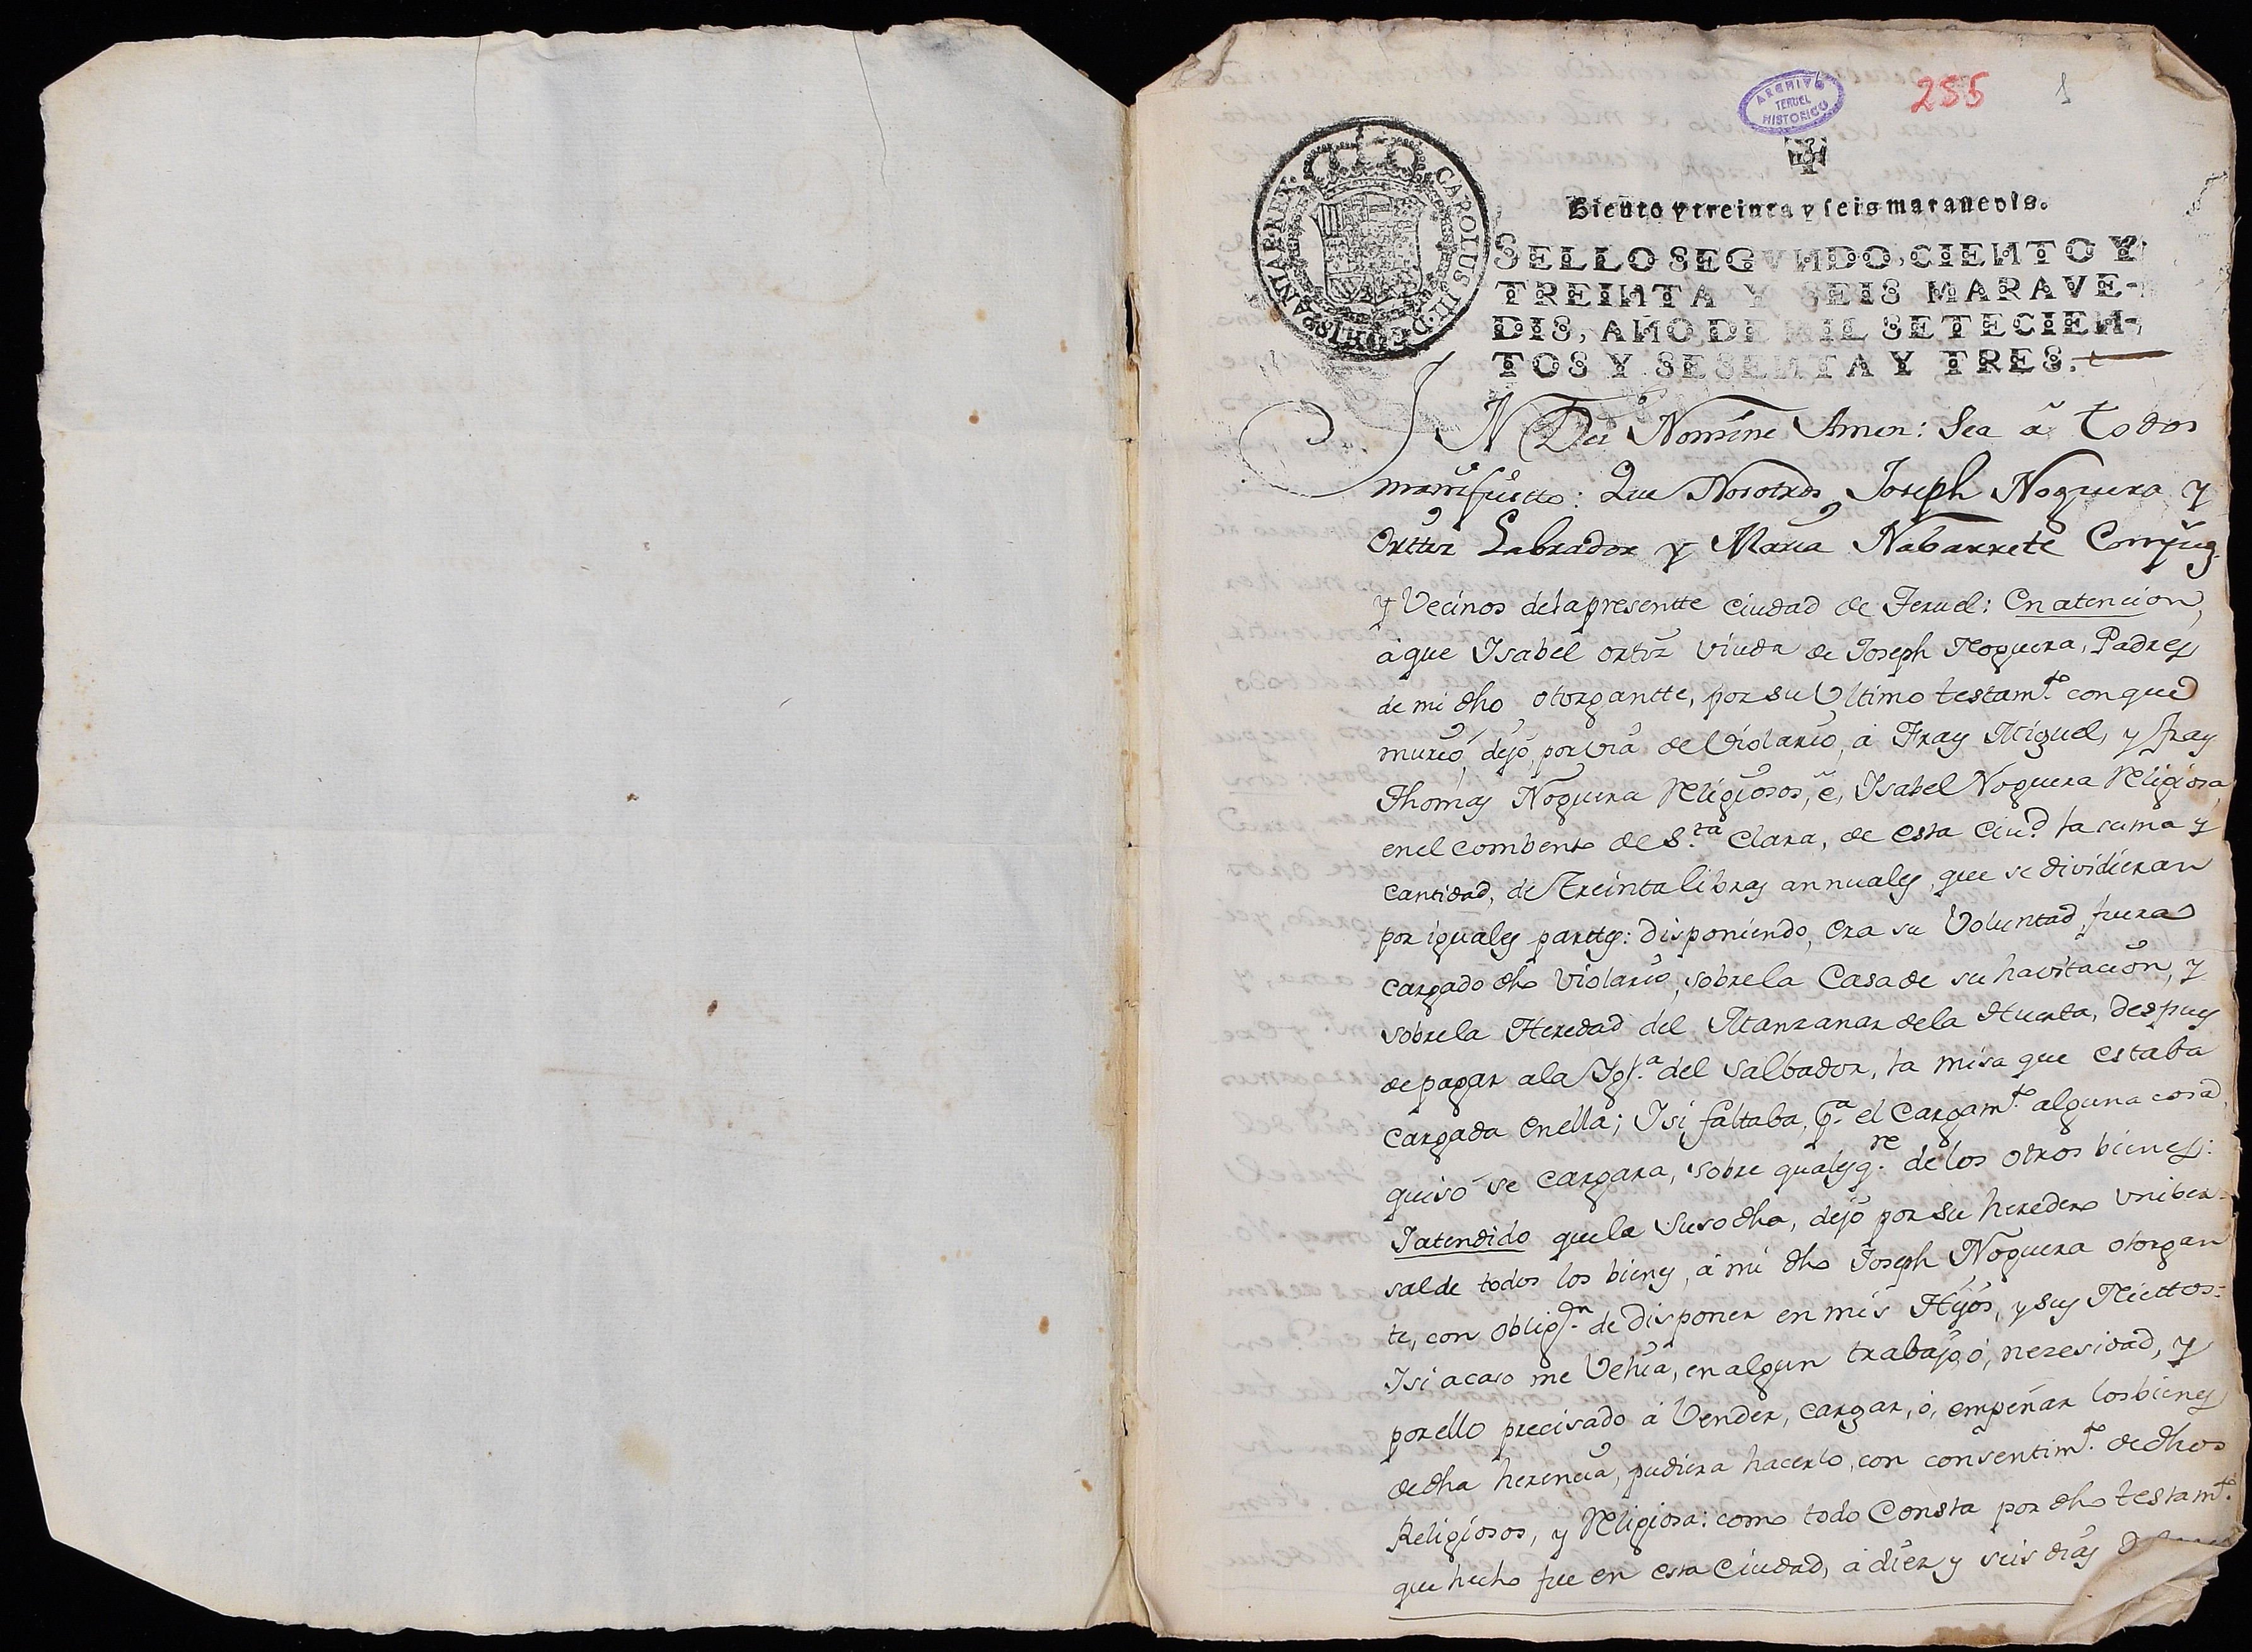 ARCHIVO
TERUEL
HISTORICO
255
1
CAROLUS III. D. G. HISPANIAR. REX.
Siento y treinta y seis marauedis.
SELLO SEGVNDO, CIENTO Y
TREINTA Y SEIS MARAVE-
DIS, AÑO DE MIL SETECIEN-
TOS Y SESENTA Y TRES.
IN Dei Nomine Amen: Sea à todos
manifiesto: Que Nosotros Joseph Noguera y
Orttiz Labrador y Maria Nabarrete Conyug.
y Vecinos dela presentte Ciudad de Teruel: En atencion,
à que Isabel ortiz viuda de Joseph Noguera, Padres
de mi dho otorgantte, por su Ultimo testamto. con que
murió, dejó, por via de Violario, à Fray Miguel, y fray
Thomas Noguera Religiosos, è, Isabel Noguera Religiosa,
en el combento de Sta. Clara, de esta Ciud. la suma y
cantidad, de Treinta libras annuales, que se dividieran
por iguales parttes: disponiendo, era su Voluntad, fuera
cargado dho Violario, sobre la Casa de su havitacion, y
sobre la Heredad del Manzanar dela Huerta, despues
de pagar ala Igla. del Salbador, la misa que estaba
cargada en ella; I si faltaba, pa. el Cargamto. alguna cosa,
quiso se cargara, sobre qualesqre. de los otros bienes:
I atendido que la Susodha, dejó por su heredero vniber-
sal de todos los bienes, à mi dho Joseph Noguera otorgan
te, con obligon. de disponer en mis Hijos, y sus Niettos:
I si acaso me Vehia, en algun trabajo, ó, nezesidad, y
por ello precisado à Vender, cargar, ó, empeñar los bienes
de dha herencia, pudiera hacerlo, con consentimto. de dhos
Religiosos, y Religiosa: como todo Consta por dho testamto.
que hecho fue en esta Ciudad, à diez y seis dias